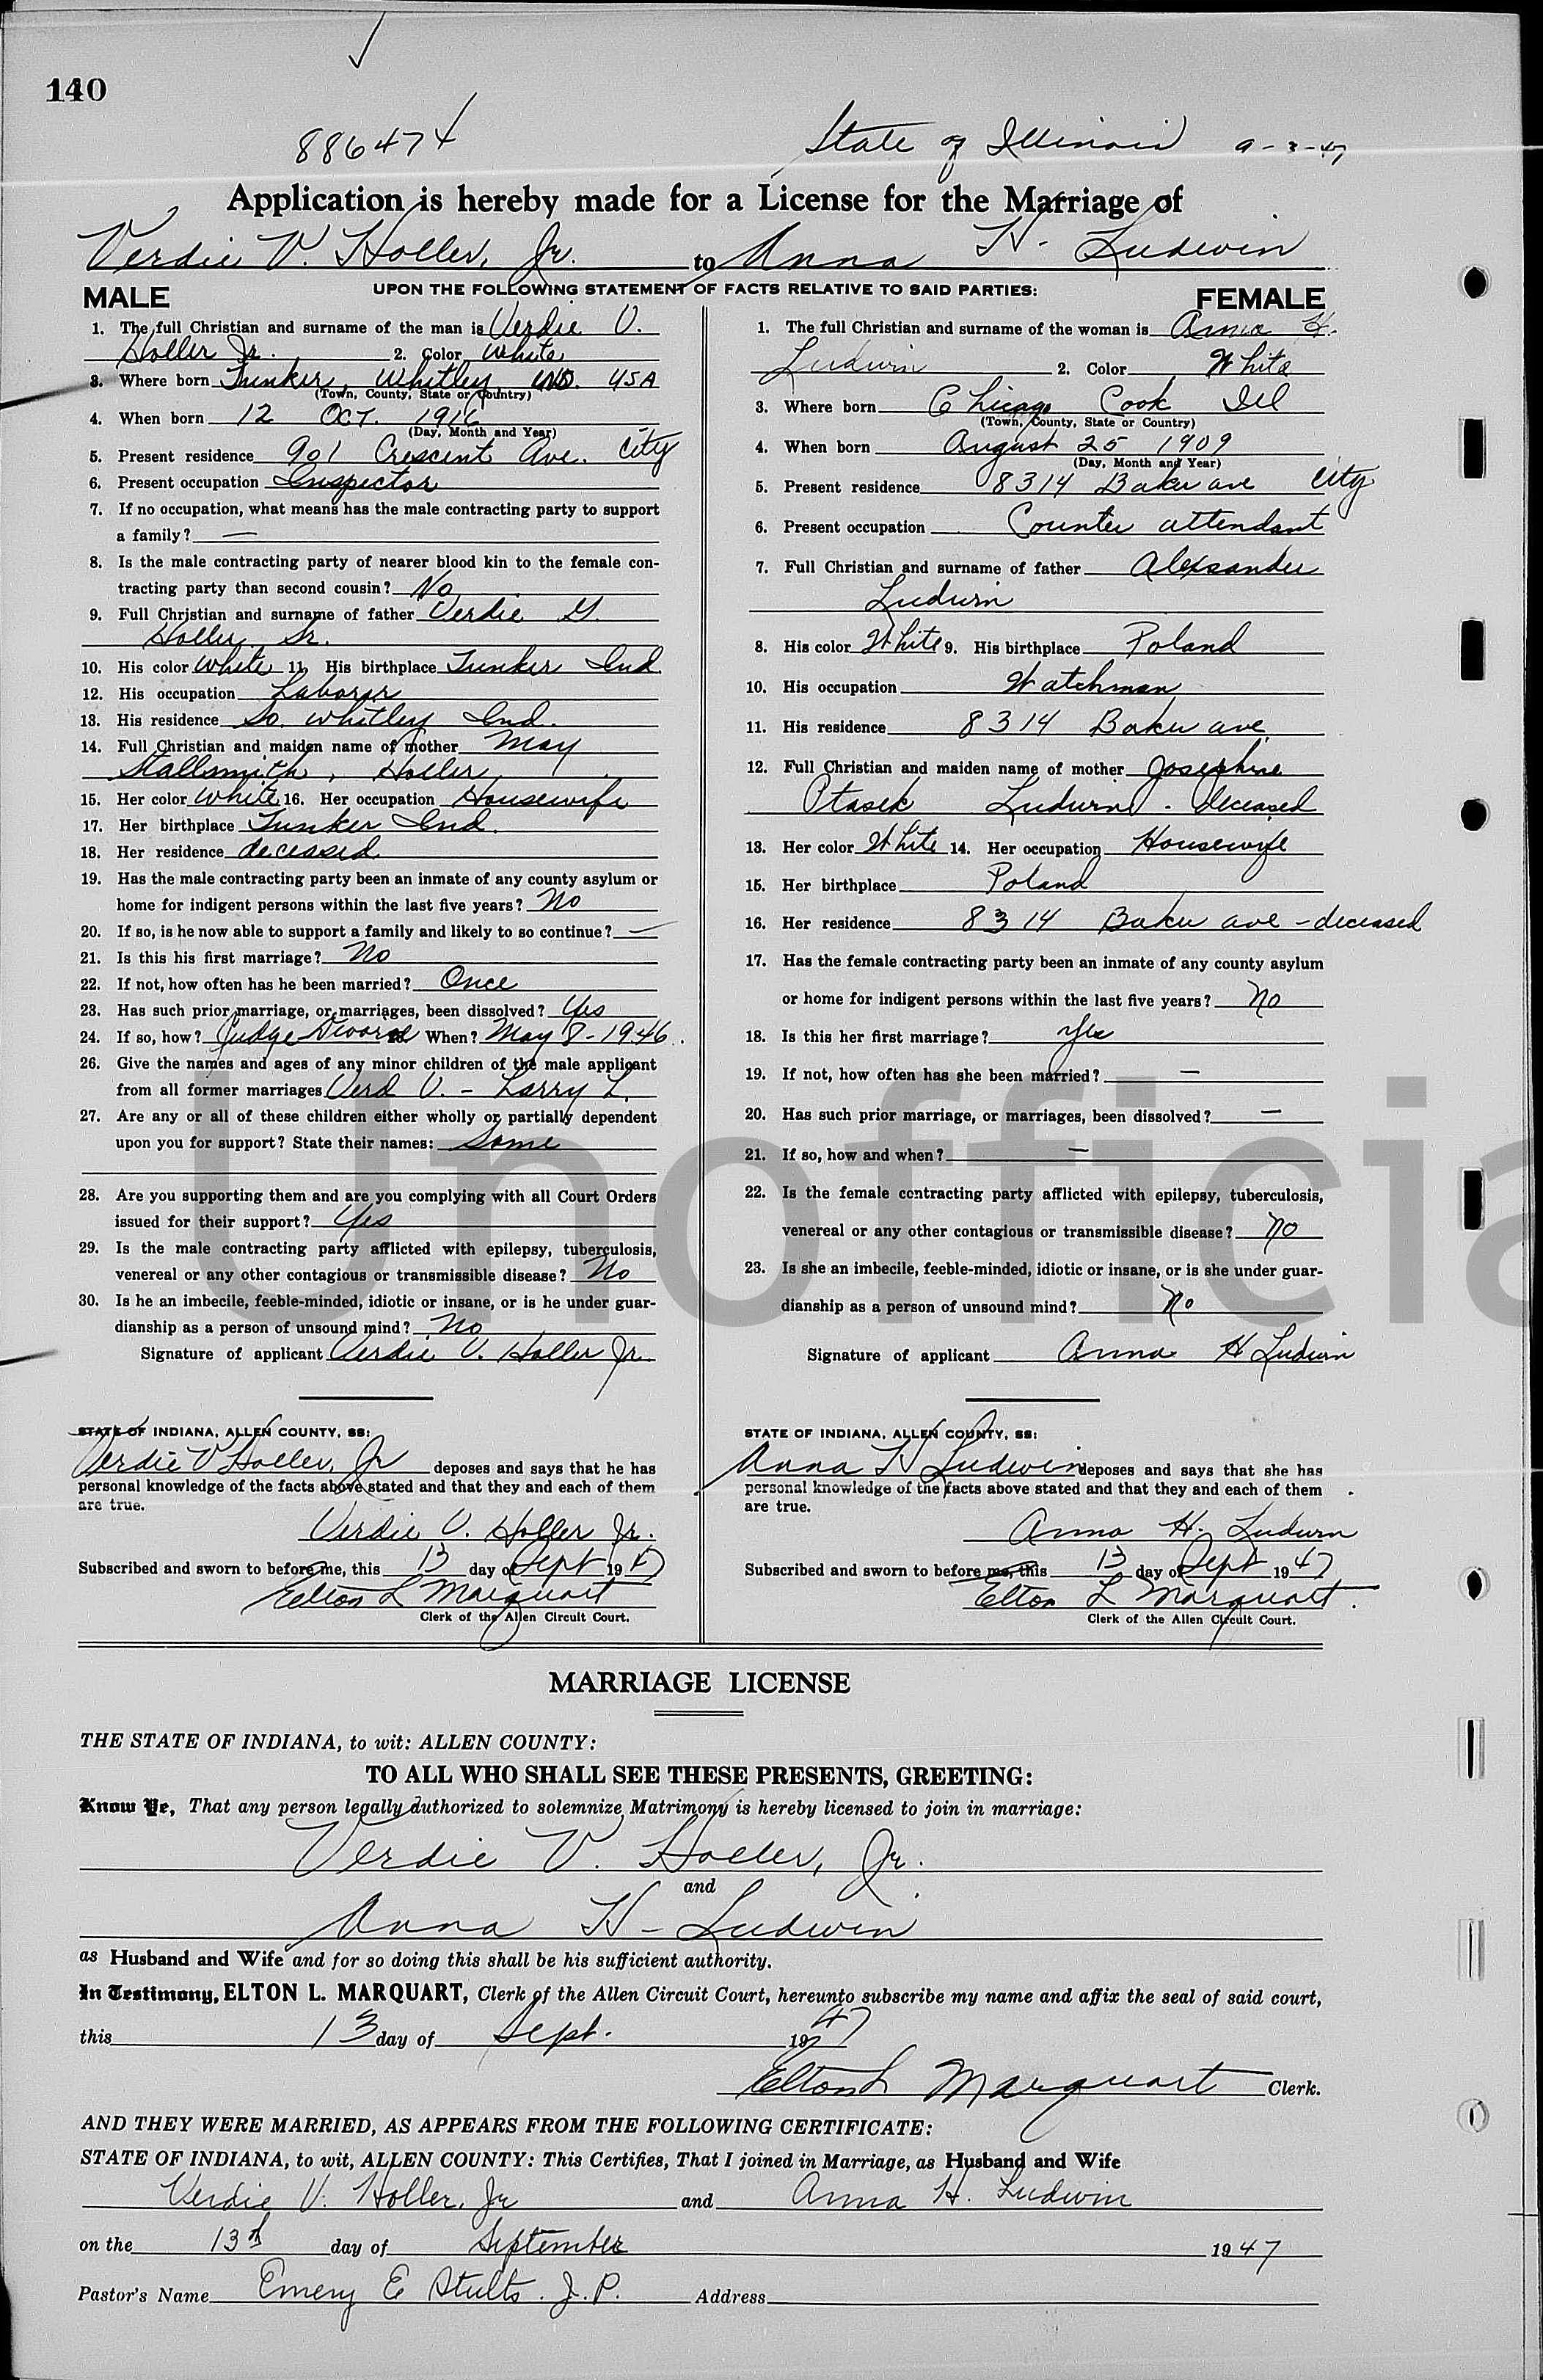 140
886474 State of Illinois 9-3-47
Application is hereby made for a License for the Marriage of
Verdie V. Holler, Jr. to Anna H. Ludwin
UPON THE FOLLOWING STATEMENT OF FACTS RELATIVE TO SAID PARTIES:
MALE
1. The full Christian and surname of the man is Verdie V.
Holler Jr. 2. Color White
3. Where born Tunker, Whitley IND. USA
(Town, County, State or Country)
4. When born 12 OCT. 1916
(Day, Month and Year)
5. Present residence 901 Crescent Ave. City
6. Present occupation Inspector
7. If no occupation, what means has the male contracting party to support
a family? —
8. Is the male contracting party of nearer blood kin to the female con-
tracting party than second cousin? No
9. Full Christian and surname of father Verdie G.
Holler Sr.
10. His color White 11. His birthplace Tunker Ind
12. His occupation Laborer
13. His residence So. Whitley Ind.
14. Full Christian and maiden name of mother May
Stallsmith, Holler
15. Her color White 16. Her occupation Housewife
17. Her birthplace Tunker Ind.
18. Her residence deceased
19. Has the male contracting party been an inmate of any county asylum or
home for indigent persons within the last five years? No
20. If so, is he now able to support a family and likely to so continue? —
21. Is this his first marriage? No
22. If not, how often has he been married? Once
23. Has such prior marriage, or marriages, been dissolved? Yes
24. If so, how? Judge Divorce When? May 8-1946.
26. Give the names and ages of any minor children of the male applicant
from all former marriages Verd V. - Larry L.
27. Are any or all of these children either wholly or partially dependent
upon you for support? State their names: Same
28. Are you supporting them and are you complying with all Court Orders
issued for their support? Yes
29. Is the male contracting party afflicted with epilepsy, tuberculosis,
venereal or any other contagious or transmissible disease? No
30. Is he an imbecile, feeble-minded, idiotic or insane, or is he under guar-
dianship as a person of unsound mind? No
Signature of applicant Verdie V. Holler Jr.
STATE OF INDIANA, ALLEN COUNTY, SS:
Verdie V Holler, Jr deposes and says that he has
personal knowledge of the facts above stated and that they and each of them
are true.
Verdie V. Holler Jr.
Subscribed and sworn to before me, this 13 day of Sept 1947
Elton L Marquart
Clerk of the Allen Circuit Court.
FEMALE
1. The full Christian and surname of the woman is Anna H.
Ludwin 2. Color White
3. Where born Chicago Cook Ill
(Town, County, State or Country)
4. When born August 25 1909
(Day, Month and Year)
5. Present residence 8314 Baker ave City
6. Present occupation Counter attendant
7. Full Christian and surname of father Alexsander
Ludwin
8. His color White 9. His birthplace Poland
10. His occupation Watchman
11. His residence 8314 Baker ave
12. Full Christian and maiden name of mother Josephine
Ptasek Ludwin - deceased
13. Her color White 14. Her occupation Housewife
15. Her birthplace Poland
16. Her residence 8314 Baker ave - deceased
17. Has the female contracting party been an inmate of any county asylum
or home for indigent persons within the last five years? No
18. Is this her first marriage? Yes
19. If not, how often has she been married? —
20. Has such prior marriage, or marriages, been dissolved? —
21. If so, how and when? —
22. Is the female contracting party afflicted with epilepsy, tuberculosis,
venereal or any other contagious or transmissible disease? No
23. Is she an imbecile, feeble-minded, idiotic or insane, or is she under guar-
dianship as a person of unsound mind? No
Signature of applicant Anna H Ludwin
STATE OF INDIANA, ALLEN COUNTY, SS:
Anna H Ludwin deposes and says that she has
personal knowledge of the facts above stated and that they and each of them
are true.
Anna H. Ludwin
Subscribed and sworn to before me, this 13 day of Sept 1947
Elton L Marquart.
Clerk of the Allen Circuit Court.
Unofficia
MARRIAGE LICENSE
THE STATE OF INDIANA, to wit: ALLEN COUNTY:
TO ALL WHO SHALL SEE THESE PRESENTS, GREETING:
Know Ye, That any person legally authorized to solemnize Matrimony is hereby licensed to join in marriage:
Verdie V. Holler, Jr.
and
Anna H- Ludwin
as Husband and Wife and for so doing this shall be his sufficient authority.
In Testimony, ELTON L. MARQUART, Clerk of the Allen Circuit Court, hereunto subscribe my name and affix the seal of said court,
this 13 day of Sept. 1947
Elton L Marquart Clerk.
AND THEY WERE MARRIED, AS APPEARS FROM THE FOLLOWING CERTIFICATE:
STATE OF INDIANA, to wit, ALLEN COUNTY: This Certifies, That I joined in Marriage, as Husband and Wife
Verdie V. Holler, Jr and Anna H. Ludwin
on the 13th day of September 1947
Pastor's Name Emery E Stults. J.P. Address